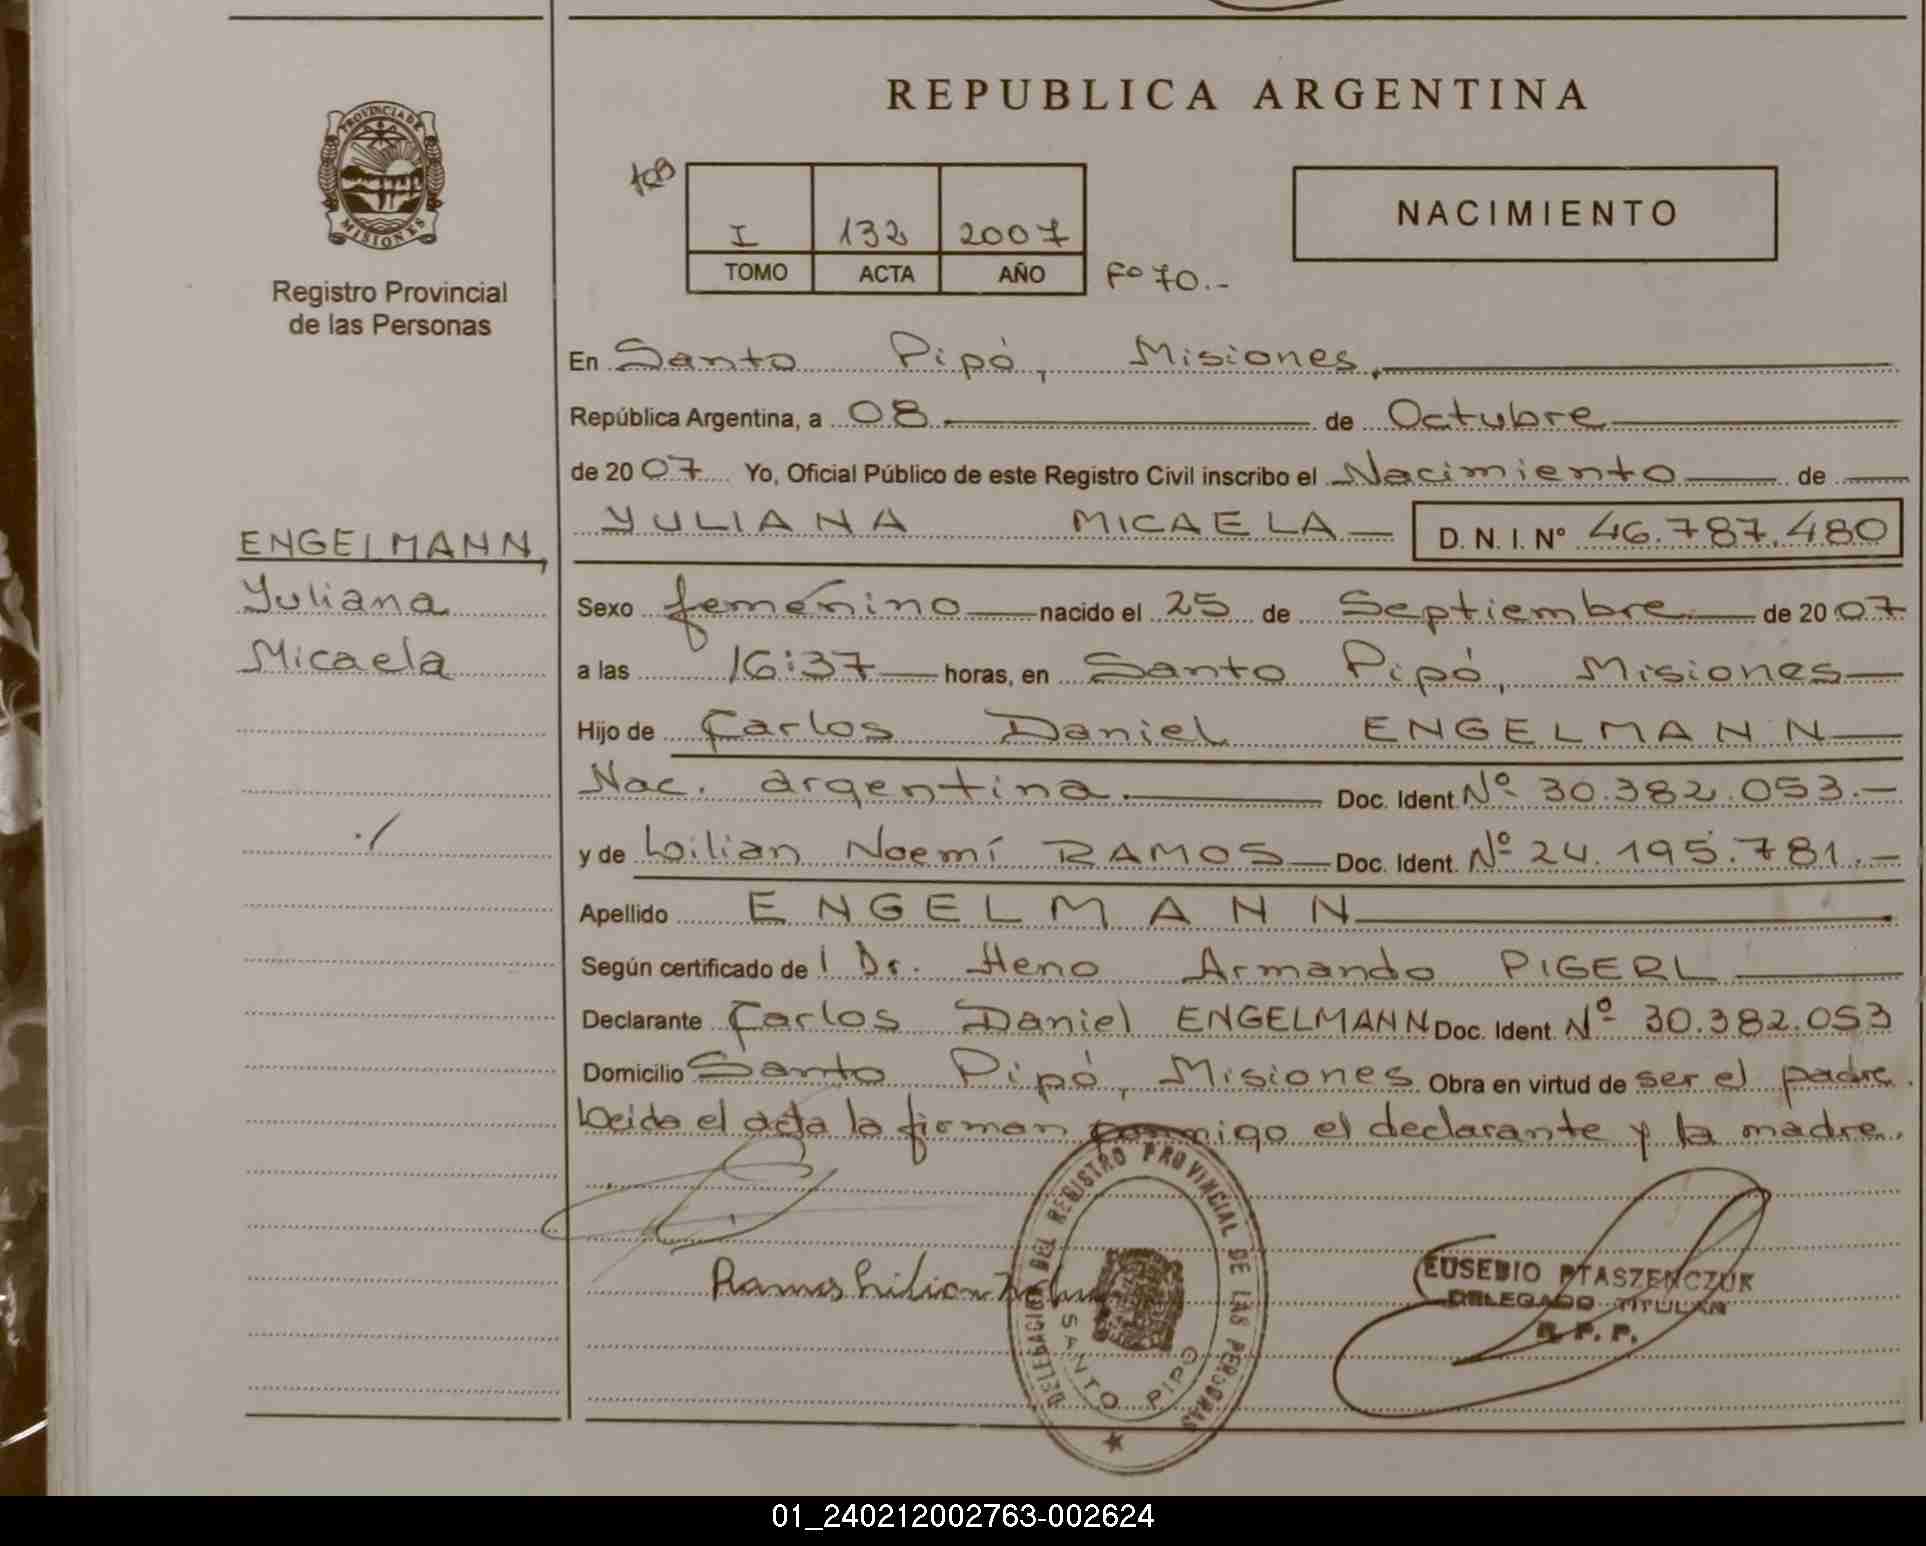 REPUBLICA ARGENTINA
PROVINCIA DE
MISIONES
Registro Provincial
de las Personas
I 132 2007
TOMO ACTA AÑO
Fº 70.-
NACIMIENTO
En Santo Pipó, Misiones,
República Argentina, a 08 de Octubre
de 2007 Yo, Oficial Público de este Registro Civil inscribo el Nacimiento de
YULIANA MICAELA D. N. I. Nº 46.787.480
ENGELMANN,
Yuliana
Micaela
./
Sexo femenino nacido el 25 de Septiembre de 2007
a las 16:37 horas, en Santo Pipó, Misiones
Hijo de Carlos Daniel ENGELMANN
Nac. argentina. Doc. Ident. Nº 30.382.053.-
y de Lilian Noemí RAMOS Doc. Ident. Nº 24.195.781.-
Apellido ENGELMANN
Según certificado de l Dr. Heno Armando PIGERL
Declarante Carlos Daniel ENGELMANN Doc. Ident. Nº 30.382.053
Domicilio Santo Pipó, Misiones Obra en virtud de ser el padre.
Leida el acta la firman conmigo el declarante y la madre.
Ramos Lilian
DELEGACION DEL REGISTRO PROVINCIAL DE LAS PERSONAS
SANTO PIPO
EUSEBIO PTASZENCZUK
DELEGADO TITULAR
R. P. P.
01_240212002763-002624